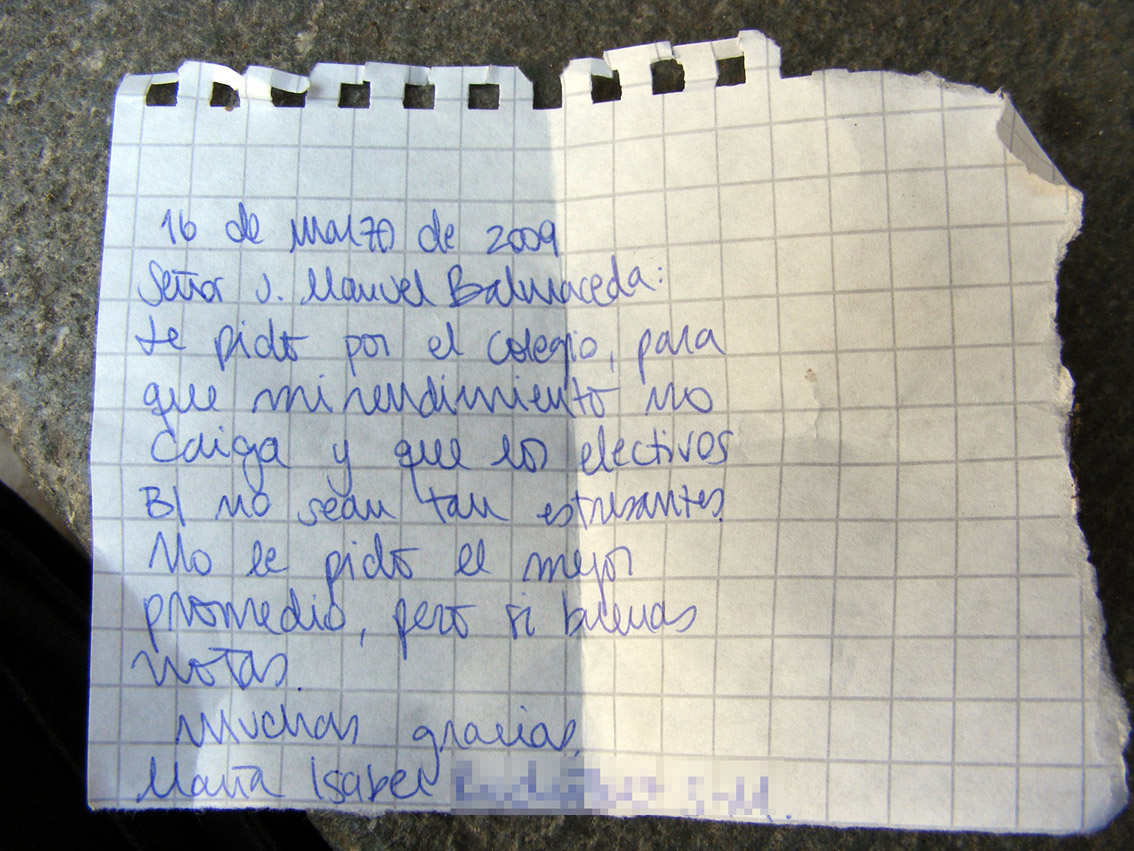 16 de marzo de 2009
Señor J. Manuel Balmaceda:
te pido por el colegio, para
que mi rendimiento no
caiga y que los electivos
BI no sean tan estresantes.
No le pido el mejor
promedio, pero si buenas
notas.
Muchas gracias,
María Isabel